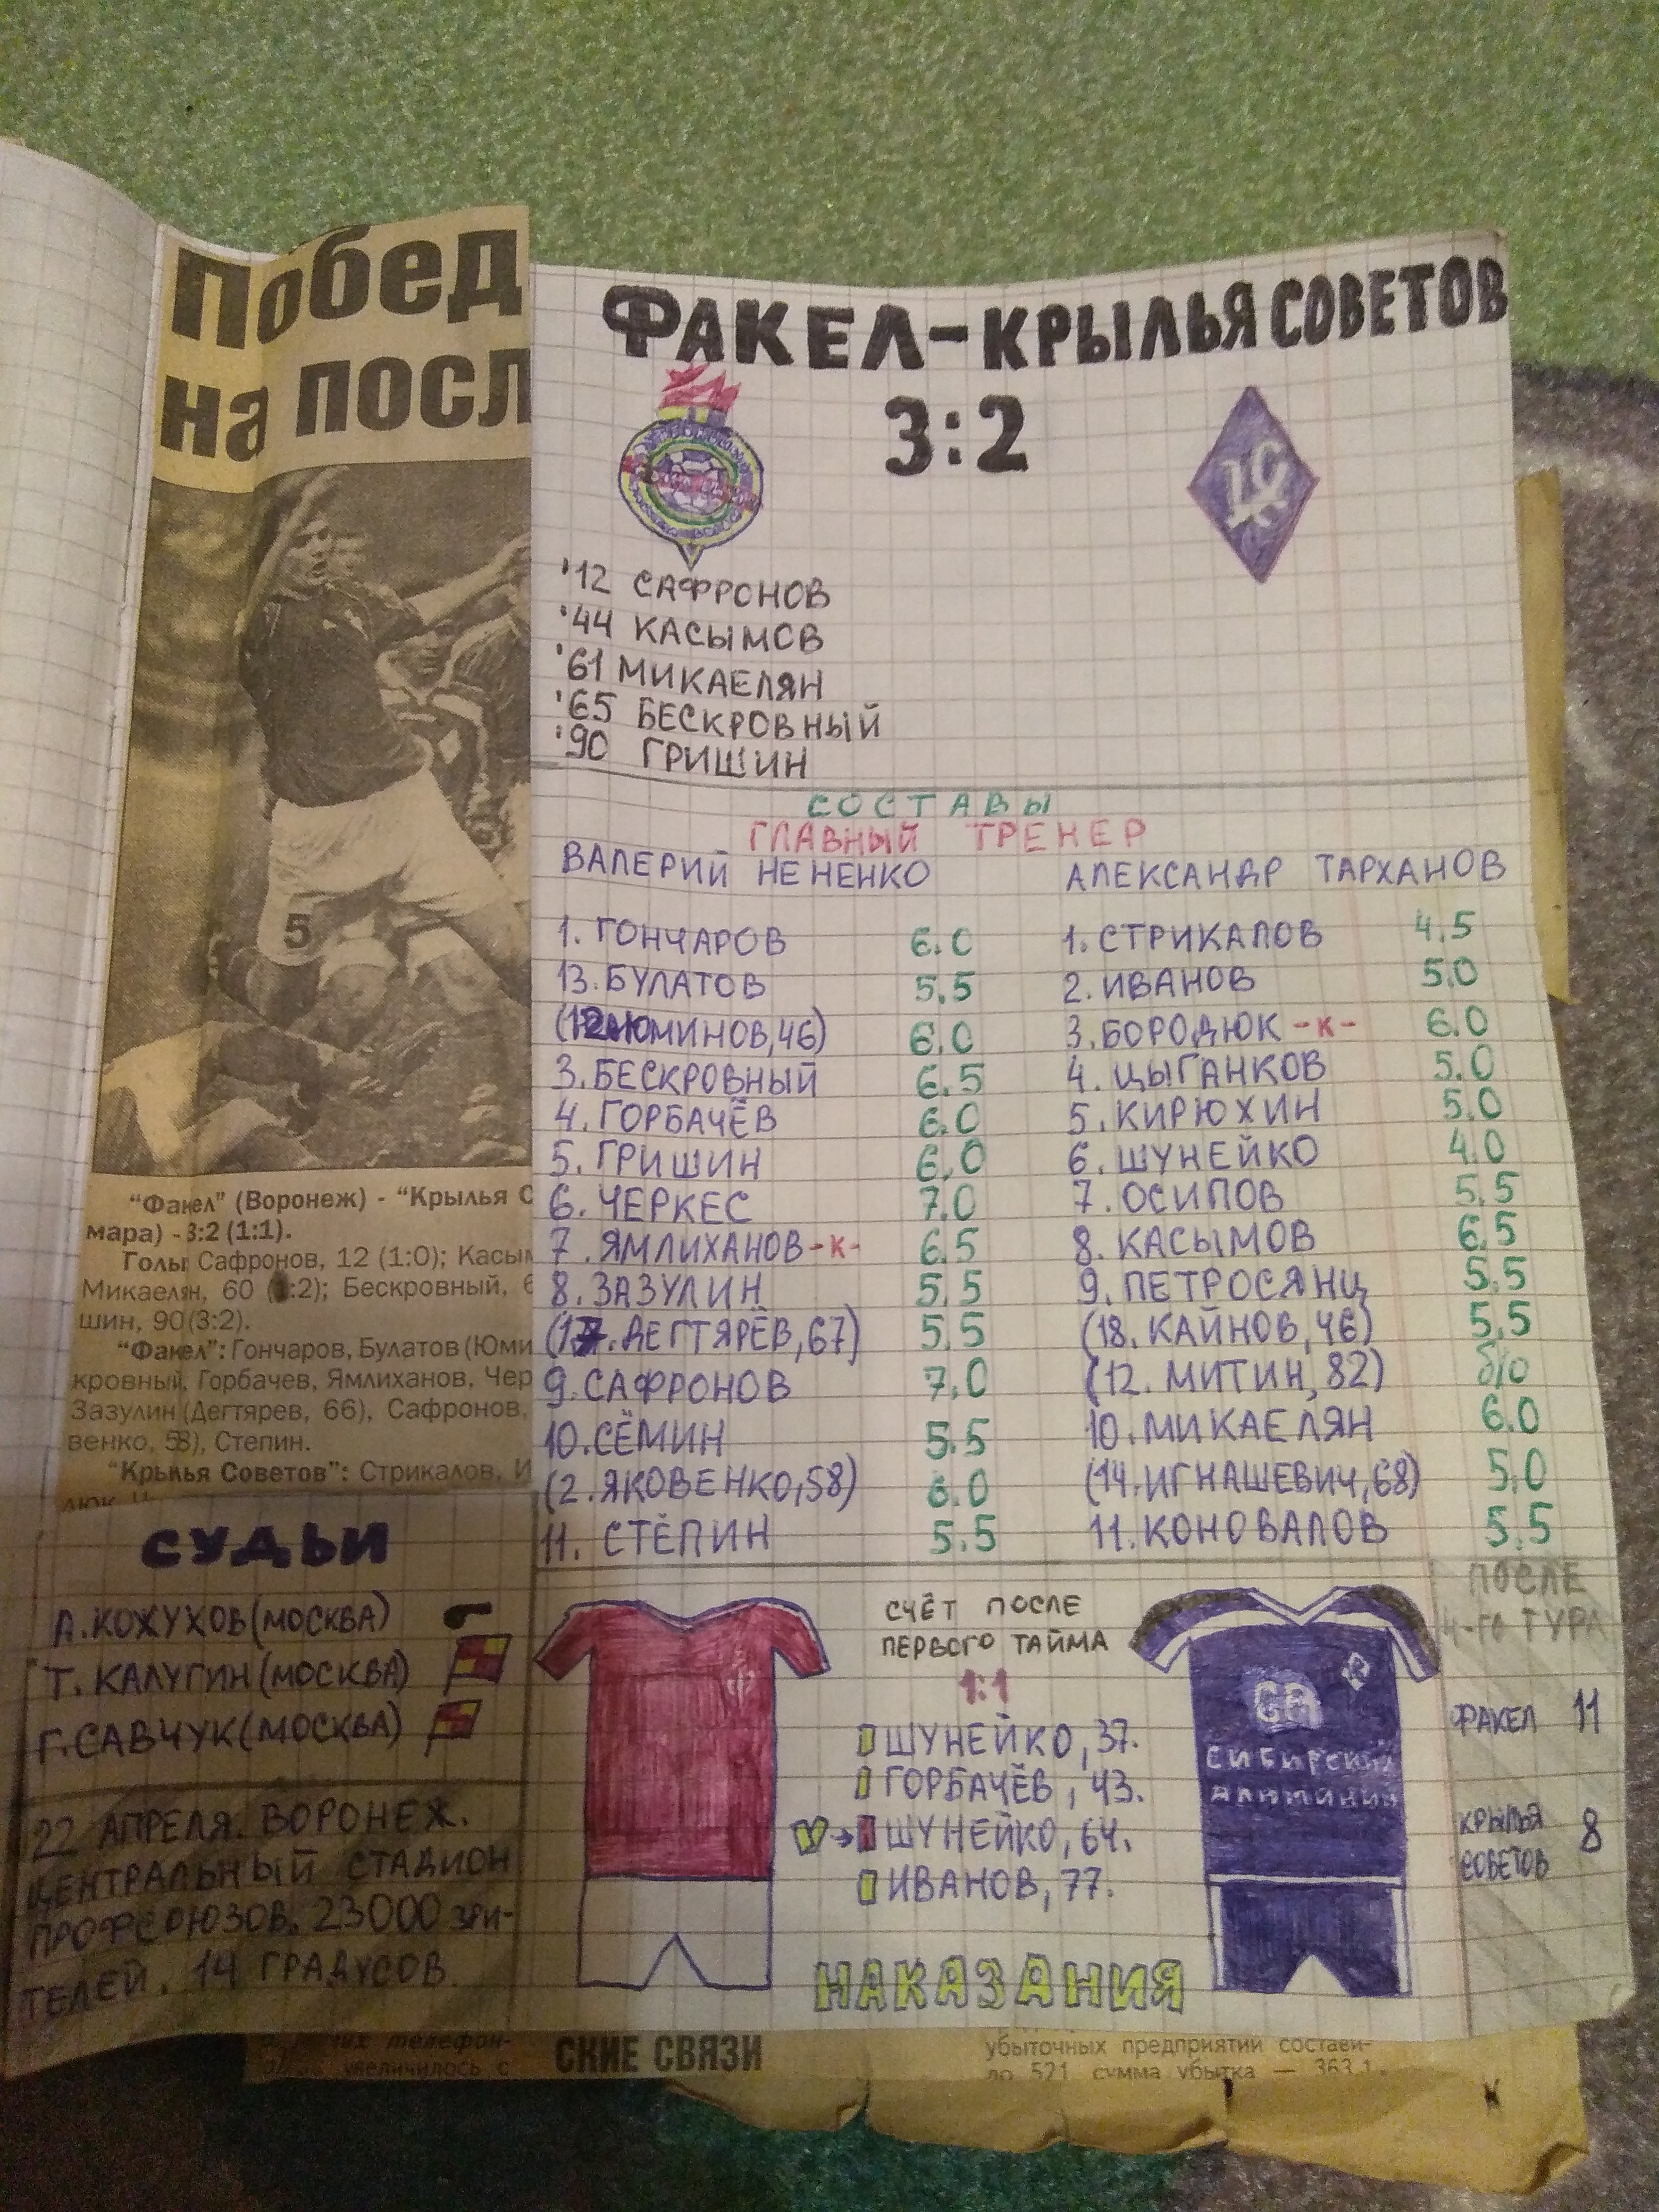 Побед
на посл
"Факел" (Воронеж) - "Крылья С
мара) - 3:2 (1:1).
Голы Сафронов, 12 (1:0); Касым
Микаелян, 60 ( :2); Бескровный, 6
шин, 90 (3:2).
"Факел": Гончаров, Булатов (Юми
кровный, Горбачев, Ямлиханов, Чер
Зазулин (Дегтярев, 66), Сафронов,
венко, 58), Степин.
"Крылья Советов": Стрикалов, И
СУДЬИ
А.КОЖУХОВ(МОСКВА)
Т. КАЛУГИН(МОСКВА)
Г.САВЧУК(МОСКВА)
22 АПРЕЛЯ. ВОРОНЕЖ.
ЦЕНТРАЛЬНЫЙ СТАДИОН
ПРОФСОЮЗОВ. 23000 ЗРИ-
ТЕЛЕЙ. 14 ГРАДУСОВ
ФАКЕЛ-КРЫЛЬЯ СОВЕТОВ
3:2
'12 САФРОНОВ
'44 КАСЫМОВ
'61 МИКАЕЛЯН
'65 БЕСКРОВНЫЙ
'90 ГРИШИН
СОСТАВЫ
ГЛАВНЫЙ ТРЕНЕР
ВАЛЕРИЙ НЕНЕНКО АЛЕКСАНДР ТАРХАНОВ
1. ГОНЧАРОВ 6.0 1. СТРИКАЛОВ 4.5
13. БУЛАТОВ 5.5 2. ИВАНОВ 5.0
(12.ЮМИНОВ,46) 6.0 3. БОРОДЮК -К- 6.0
3. БЕСКРОВНЫЙ 6.5 4. ЦЫГАНКОВ 5.0
4. ГОРБАЧЁВ 6.0 5. КИРЮХИН 5.0
5. ГРИШИН 6.0 6. ШУНЕЙКО 4.0
6. ЧЕРКЕС 7.0 7. ОСИПОВ 5.5
7. ЯМЛИХАНОВ -К- 6.5 8. КАСЫМОВ 6.5
8. ЗАЗУЛИН 5.5 9. ПЕТРОСЯНЦ 5.5
(17. ДЕГТЯРЁВ,67) 5.5 (18. КАЙНОВ,46) 5.5
9. САФРОНОВ 7.0 (12. МИТИН,82) б/о
10. СЁМИН 5.5 10. МИКАЕЛЯН 6.0
(2. ЯКОВЕНКО,58) 6.0 (14. ИГНАШЕВИЧ,68) 5.0
11. СТЁПИН 5.5 11. КОНОВАЛОВ 5.5
СЧЁТ ПОСЛЕ
ПЕРВОГО ТАЙМА
1:1
ШУНЕЙКО, 37.
ГОРБАЧЁВ, 43.
ШУНЕЙКО, 64.
ИВАНОВ, 77.
НАКАЗАНИЯ
СА
СИБИРСКИЙ
АЛЮМИНИЙ
ПОСЛЕ
4-ГО ТУРА
ФАКЕЛ 11
КРЫЛЬЯ
СОВЕТОВ 8
телефон-
увеличилось с
СКИЕ СВЯЗИ
убыточных предприятий состави-
ло 521 сумма убытка — 363,1